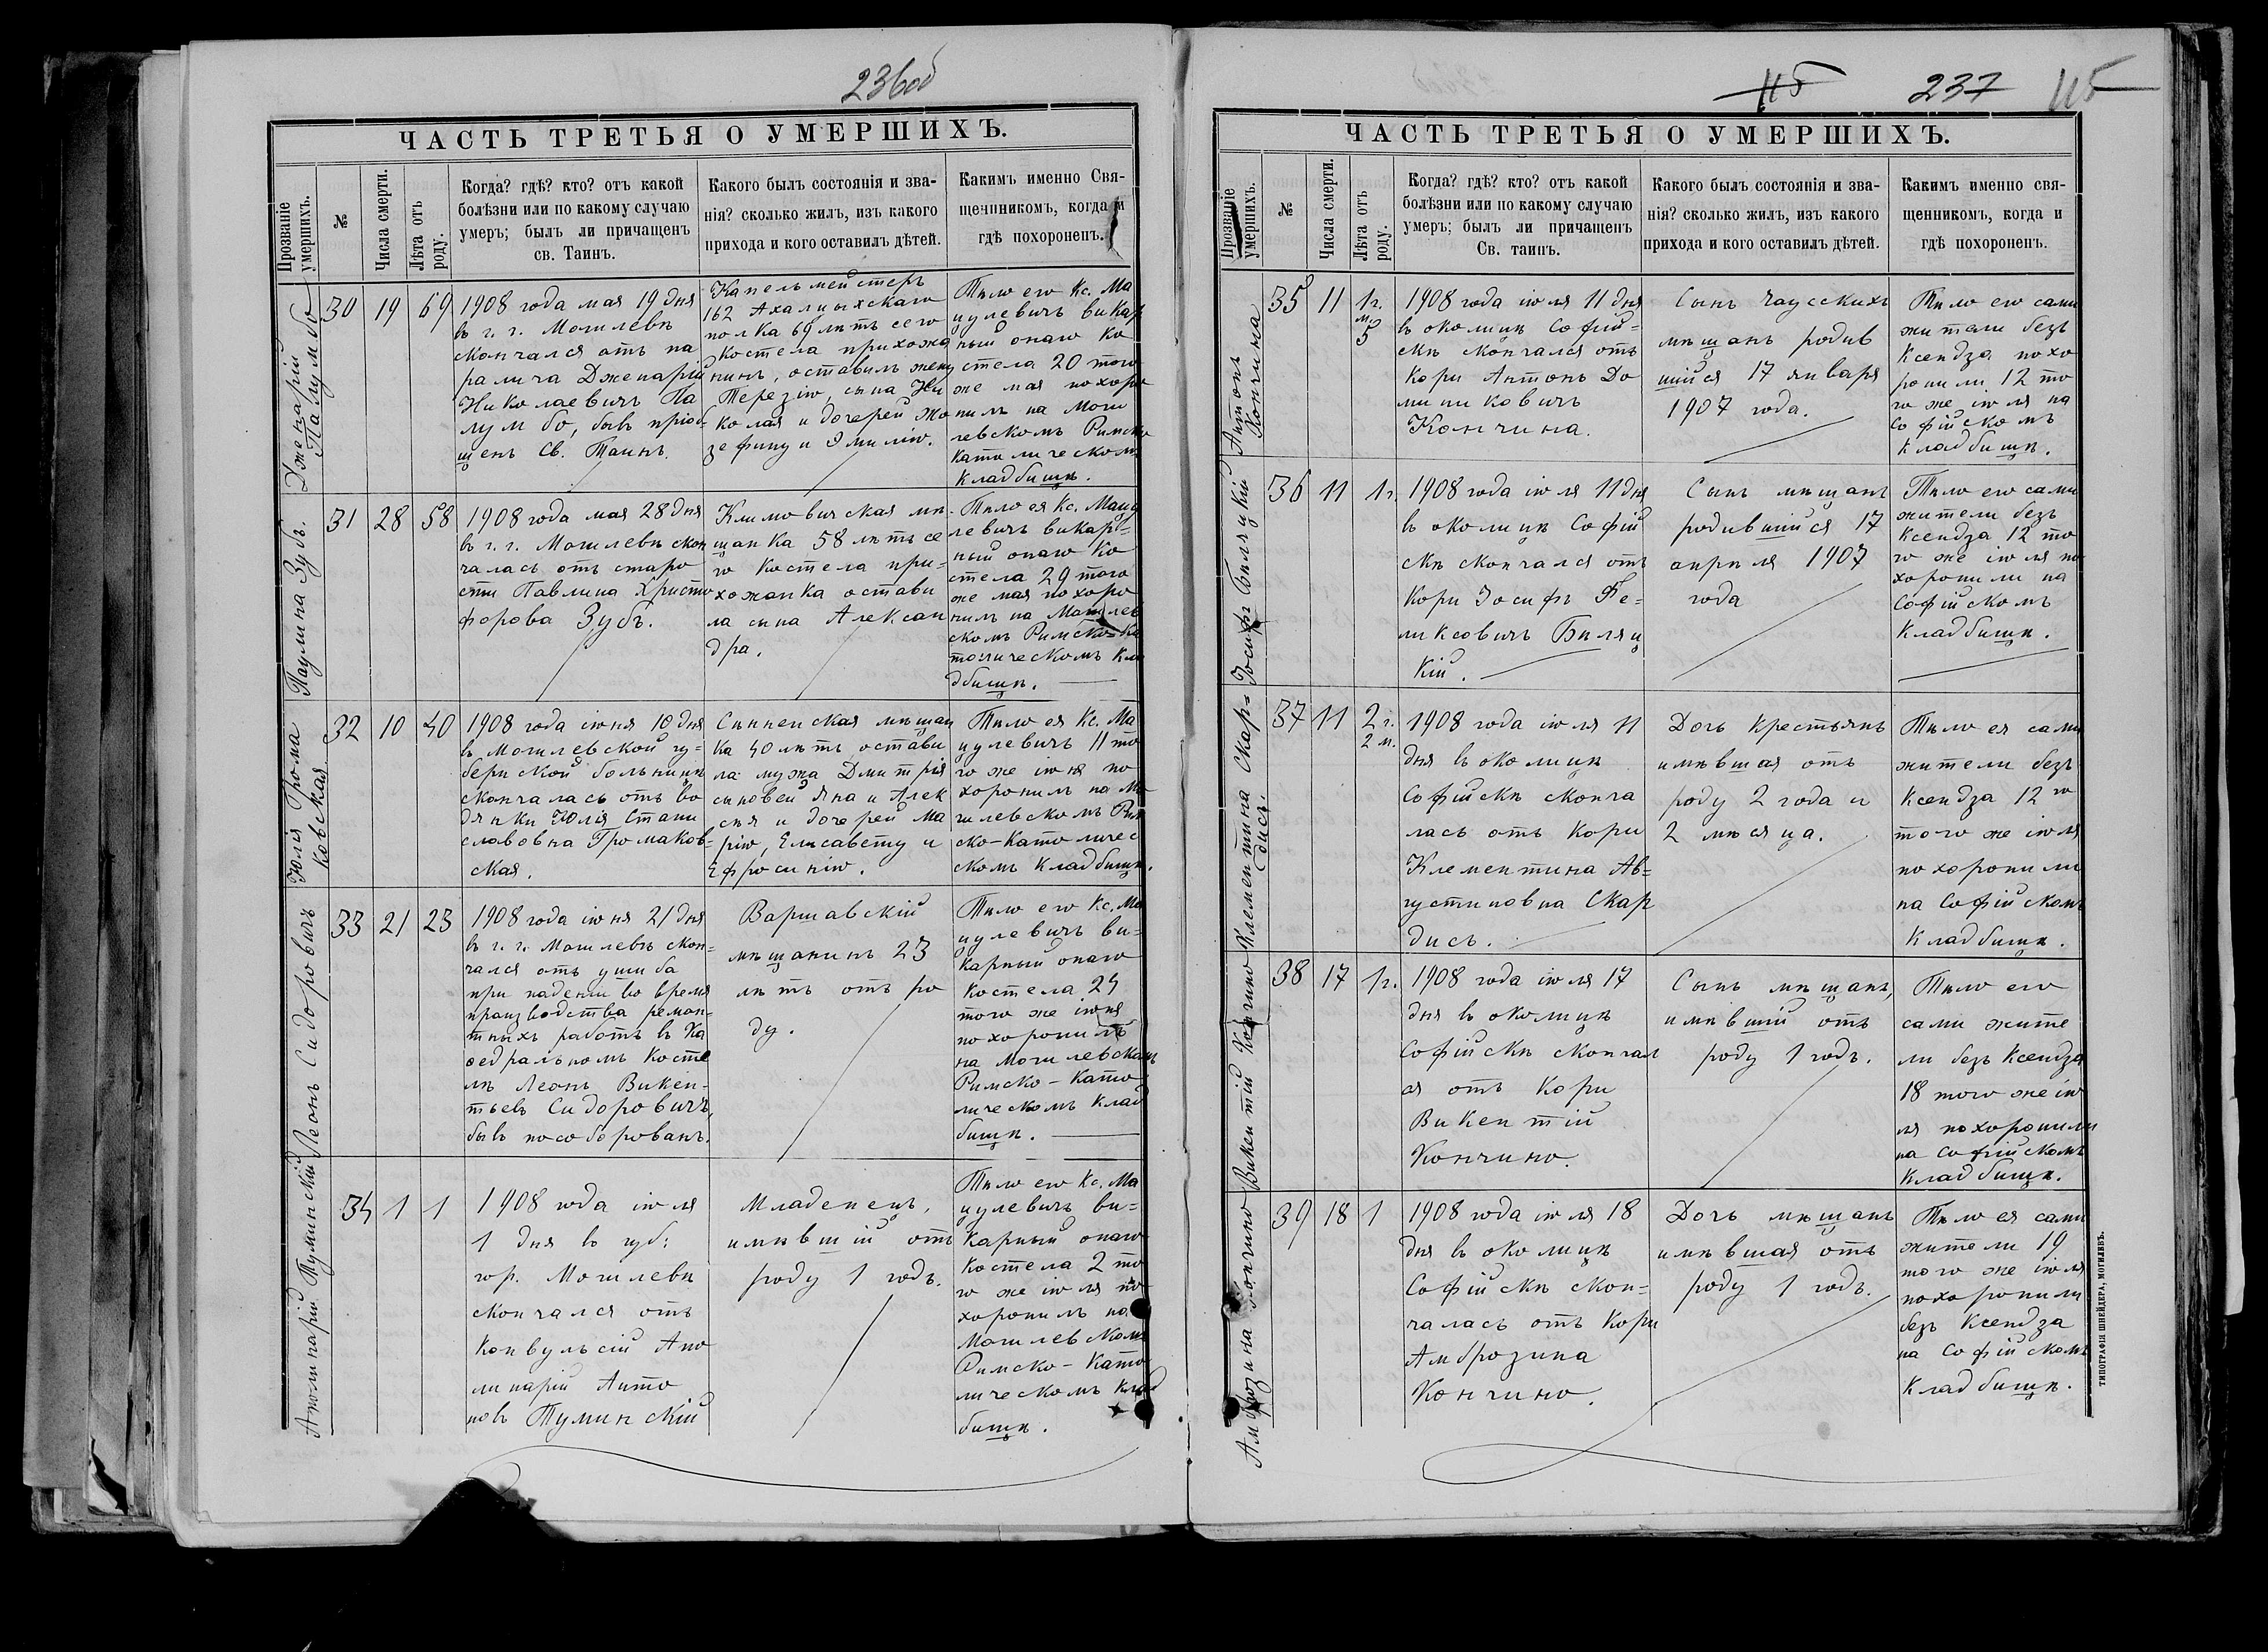 236об
ЧАСТЬ ТРЕТЬЯ О УМЕРШИХЪ.
Прозваніе умершихъ.
№
Числа смерти.
Лѣта отъ роду.
Когда? гдѣ? кто? отъ какой
болѣзни или по какому случаю
умеръ; былъ ли причащенъ
св. Таинъ.
Какого былъ состоянія и зва-
нія? сколько жилъ, изъ какого
прихода и кого оставилъ дѣтей.
Какимъ именно Свя-
щенникомъ, когда и
гдѣ похороненъ.
Дженарій
Палумбо
30
19
69
1908 года мая 19 дня
въ г. г. Могилевѣ
скончался отъ па
ралича Дженарій
Николаевичъ Па
лумбо, бывъ пріоб-
щенъ Св. Таинъ.
Капельмейстеръ
162 Ахалцыхскаго
полка 69 лѣтъ сего
костела прихожа
нинъ, оставилъ жену
Терезію, сына Ни
колая и дочерей Жо
зефину и Эмилію.
Тѣло его Кс. Ма
цулевичъ викар
ный онаго ко
стела 20 того
же мая похоро
нилъ на Моги
левскомъ Римско
католическомъ
кладбищѣ.
Паулина Зубъ.
31
28
58
1908 года мая 28 дня
въ г. г. Могилевѣ скон
чалась отъ старо
сти Павлина Христо
форова Зубъ.
Климовичская мѣ-
щанка 58 лѣтъ се
го костела при-
хожанка остави
ла сына Алексан
дра.
Тѣло ея Кс. Мацу
левичъ викар-
ный онаго ко
стела 29 того
же мая похоро
нилъ на Могилев
скомъ Римско-Ка
толическомъ кла
дбищѣ.
Юлія Грома
ковская
32
10
40
1908 года іюня 10 дня
въ Могилевской гу-
бернской больницѣ
скончалась отъ во
дянки Юлія Стани
славовна Громаков-
ская.
Сѣнненская мѣщан
ка 40 лѣтъ остави
ла мужа Дмитрія
сыновей Яна и Алек
сѣя и дочерей Ма
рію, Елисавету и
Ефросинію.
Тѣло ея Кс. Ма
цулевичъ 11 то
го же іюня по
хоронилъ на Мо
гилевскомъ Рим
ско-Католичес
комъ кладбищѣ.
Леонъ Сидоровичъ
33
21
23
1908 года іюня 21 дня
въ г. г. Могилевѣ скон-
чался отъ ушиба
при паденіи во время
производства ремон-
тныхъ работъ въ Ка
ѳедральномъ Косте
лѣ Леонъ Викен-
тьевъ Сидоровичъ,
бывъ пособорованъ.
Варшавскій
мѣщанинъ 23
лѣтъ отъ ро
ду.
Тѣло его Кс. Ма
цулевичъ ви-
карный онаго
костела 24
того же іюня
похоронилъ
на Могилевскомъ
Римско-Като-
лическомъ клад
бищѣ.
Аполинарій Туминскій
34
1
1
1908 года іюля
1 дня въ губ:
гор. Могилевѣ
скончался отъ
конвульсій Апо
линарій Анто
новъ Туминскій
Младенецъ,
имѣвшій отъ
роду 1 годъ.
Тѣло его Кс. Ма
цулевичъ ви-
карный онаго
костела 2 то
го же іюля по
хоронилъ на
Могилевскомъ
Римско-Като-
лическомъ клад
бищѣ.
115
237
115
ЧАСТЬ ТРЕТЬЯ О УМЕРШИХЪ.
Прозваніе умершихъ.
№
Числа смерти.
Лѣта отъ роду.
Когда? гдѣ? кто? отъ какой
болѣзни или по какому случаю
умеръ; былъ ли причащенъ
Св. таинъ.
Какого былъ состоянія и зва-
нія? сколько жилъ, изъ какого
прихода и кого оставилъ дѣтей.
Какимъ именно свя-
щенникомъ, когда и
гдѣ похороненъ.
Антонъ
Кончина
35
11
1г.
м.
5
1908 года іюля 11 дня
въ околицѣ Софій-
скѣ скончался отъ
кори Антонъ До
миниковичъ
Кончина.
Сынъ Чаусскихъ
мѣщанъ родив
шійся 17 января
1907 года.
Тѣло его сами
жители безъ
Ксендза похо
ронили 12 то
го же іюля на
Софійскомъ
кладбищѣ.
Іосифъ Биляцкій
36
11
1г.
1908 года іюля 11 дня
въ околицѣ Софій
скѣ скончался отъ
кори Іосифъ Фе-
ликсовичъ Биляц
кій.
Сынъ мѣщанъ
родившійся 17
апрѣля 1907
года
Тѣло его сами
жители безъ
Ксендза 12 то
го же іюля по
хоронили на
Софійскомъ
кладбищѣ.
Клементина Скар-
дись.
37
11
2 г.
2 м.
1908 года іюля 11
дня въ околицѣ
Софійскѣ сконча
лась отъ кори
Клементина Ав-
густиновна Скар
дись.
Дочь крестьянъ
имѣвшая отъ
роду 2 года и
2 мѣсяца.
Тѣло ея сами
жители безъ
Ксендза 12 го
того же іюля
похоронили
на Софійскомъ
кладбищѣ.
Викентій Кончино
38
17
1г.
1908 года іюля 17
дня въ околицѣ
Софійскѣ скончал
ся отъ кори
Викентій
Кончино.
Сынъ мѣщанъ,
имѣвшій отъ
роду 1 годъ.
Тѣло его
сами жите
ли безъ Ксендза
18 того же ію
ля похоронили
на Софійскомъ
кладбищѣ.
Амброзина Кончино
39
18
1
1908 года іюля 18
дня въ околицѣ
Софійскѣ скон-
чалась отъ кори
Амброзина
Кончино.
Дочь мѣщанъ
имѣвшая отъ
роду 1 годъ.
Тѣло ея сами
жители 19
того же іюля
похоронили
безъ Ксендза
на Софійскомъ
кладбищѣ.
ТИПОГРАФІЯ ШНЕЙДЕРА, МОГИЛЕВЪ.